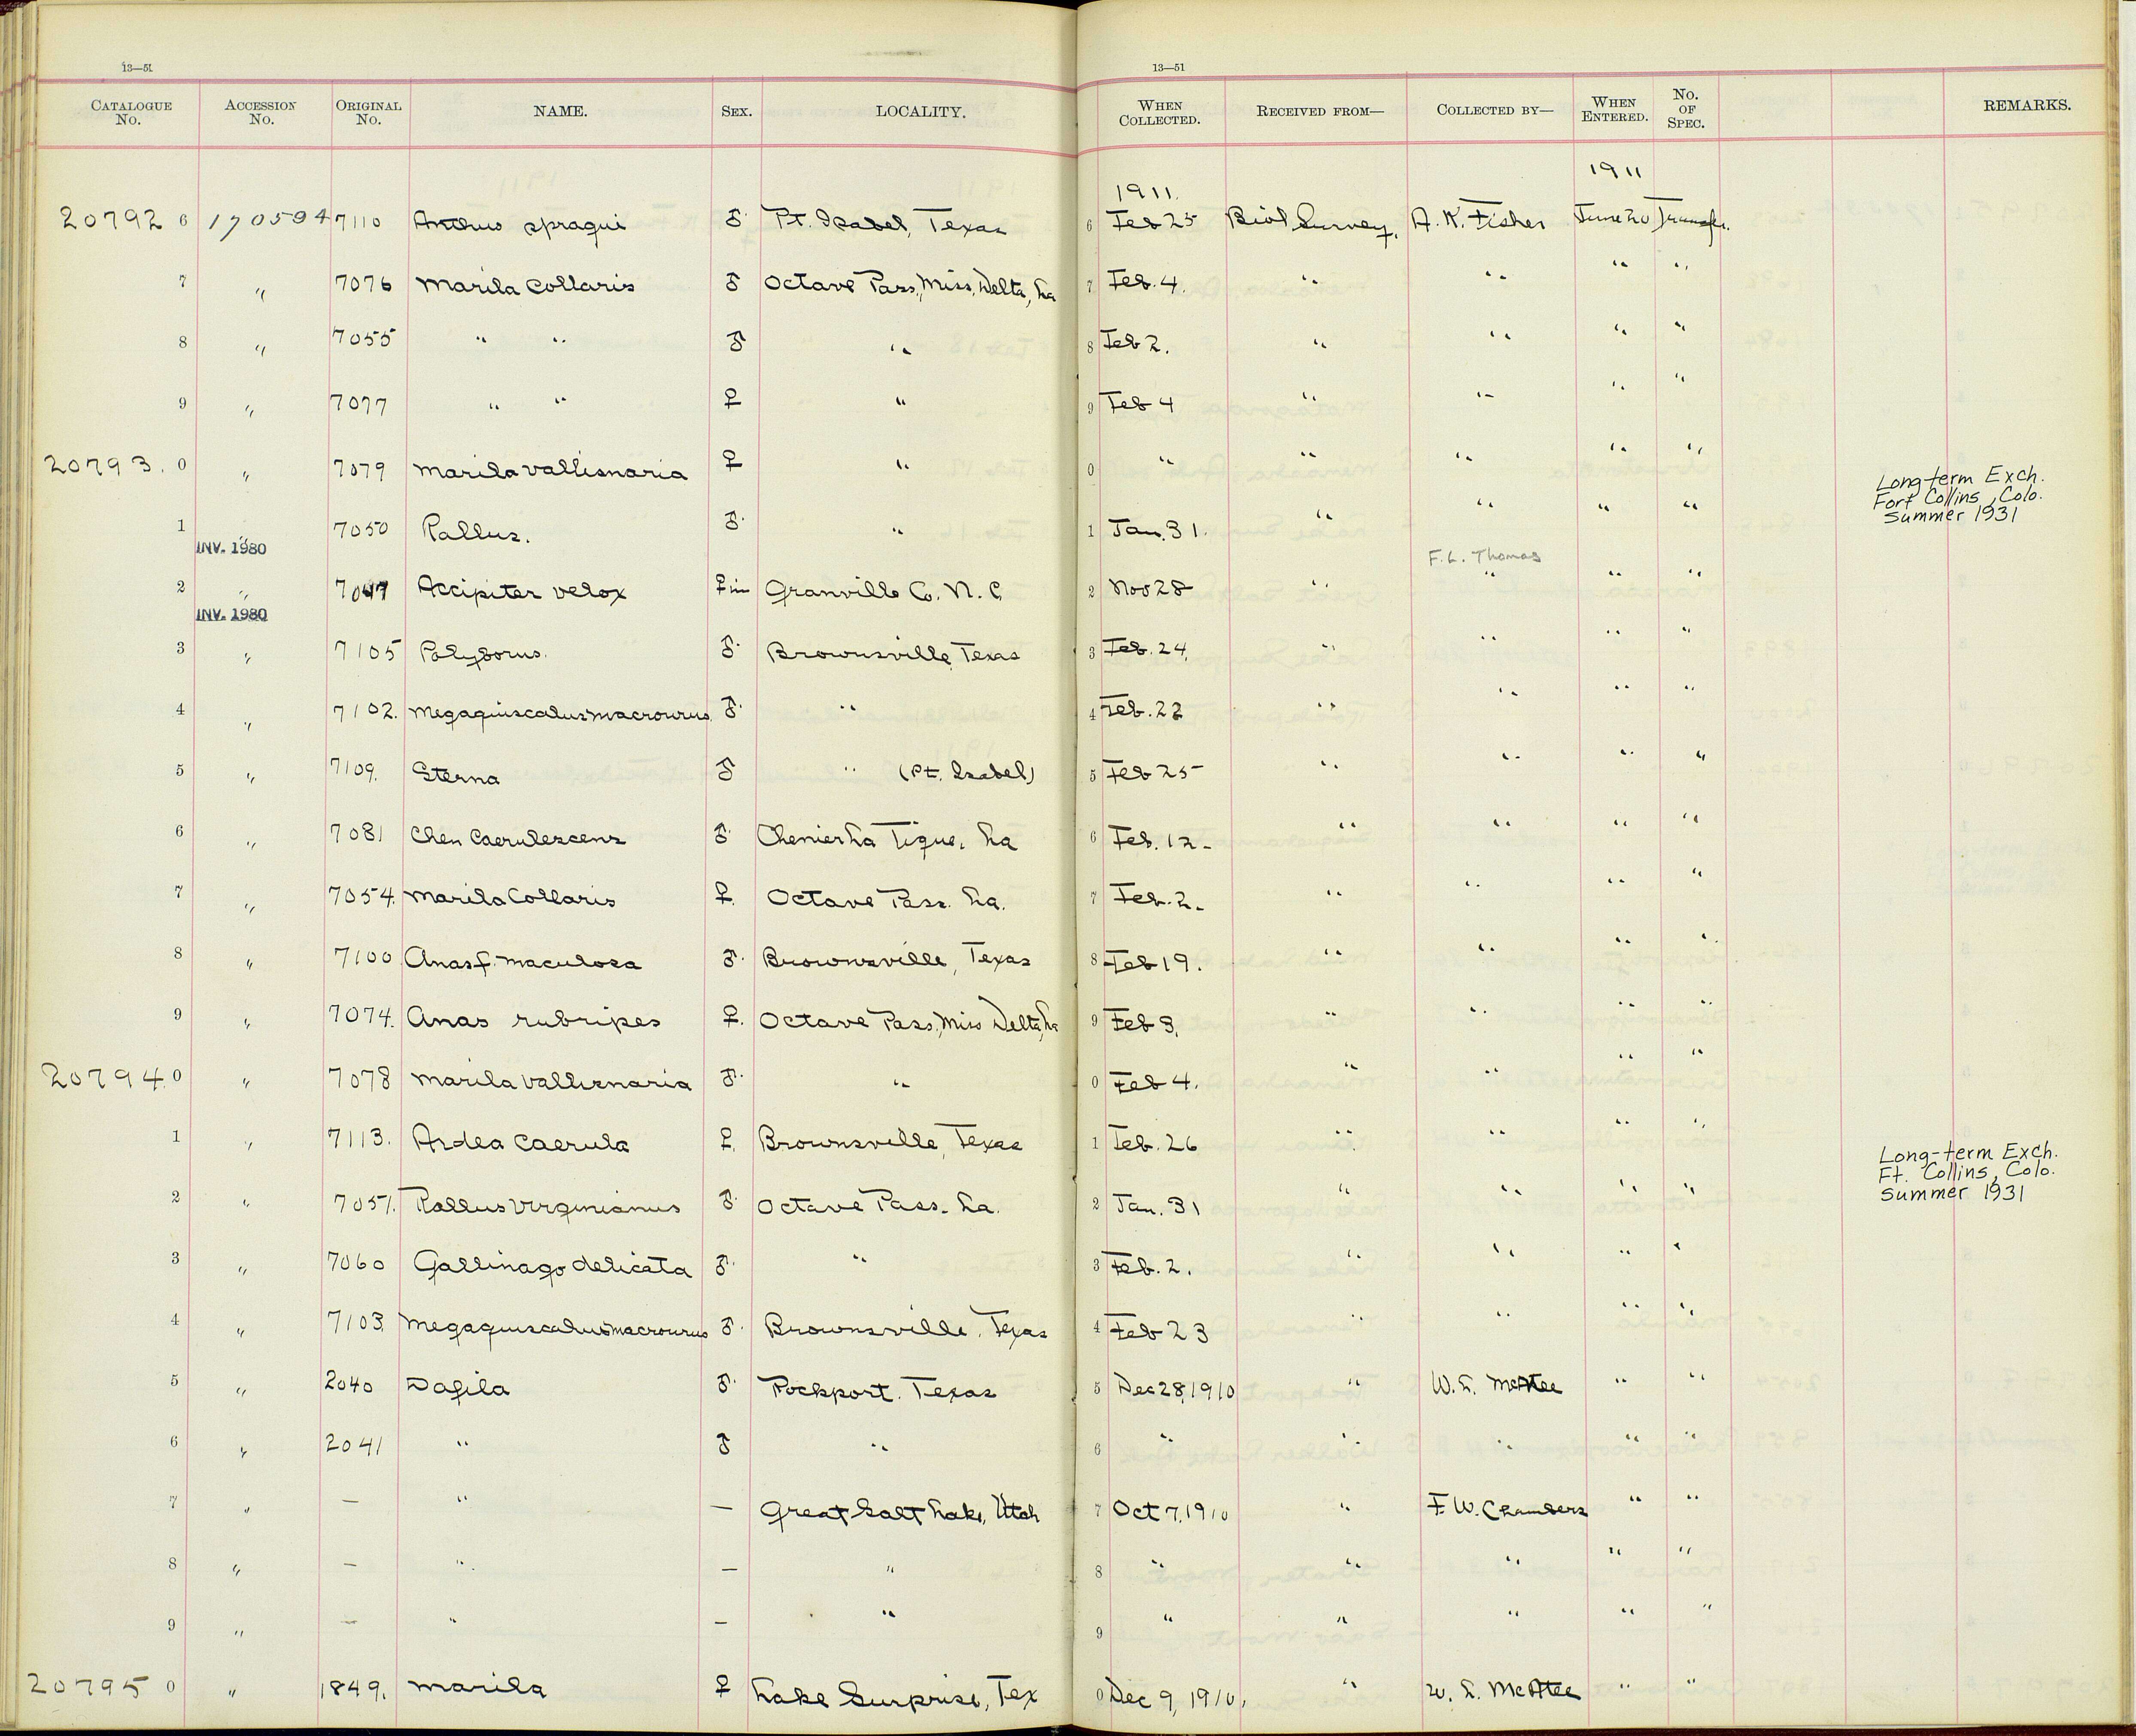 13—51 13—51
CATALOGUE No. ACCESSION No. ORIGINAL No. NAME. SEX. LOCALITY. WHEN COLLECTED. RECEIVED FROM— COLLECTED BY— WHEN ENTERED. No. OF SPEC. REMARKS.
1911. 1911
20792 6 170594 7110 Anthus spragui ♂ Pt. Isabel, Texas 6 Feb 25 Biol Survey, A. K. Fisher June 20 Transfr.
7 " 7076 Marila collaris ♂ Octave Pass, Miss, Delta, La 7 Feb. 4. " " " "
8 " 7055 " " ♂ " 8 Feb 2. " " " "
9 " 7077 " " ♀ " 9 Feb 4 " " " "
20793. 0 " 7079 Marila vallisnaria ♀ " 0 " " " " "
Long-term Exch.
Fort Collins, Colo.
Summer 1931
1 " 7050 Rallus. ♂ " 1 Jan. 31. " " " "
INV. 1980
F. L. Thomas
2 " Accipiter velox ♀ im Granville Co. N. C. 2 Nov 28 " " " "
INV. 1980
3 " 7105 Polyborus. ♂ Brownsville, Texas 3 Feb. 24. " " " "
4 " 7102. Megaquiscalus macrourus ♂ " 4 Feb. 22 " " " "
5 " 7109. Sterna ♂ " (Pt. Isabel) 5 Feb 25 " " " "
6 " 7081 Chen caerulescens ♂ Chenier La Tigue, La 6 Feb. 12 " " " "
7 " 7054. Marila Collaris ♀ Octave Pass. La. 7 Feb. 2. " " " "
8 " 7100 Anas f. maculosa ♂ Brownsville, Texas 8 Feb 19. " " " "
9 " 7074. Anas rubripes ♀. Octave Pass, Miss Delta, La 9 Feb 3. " " " "
20794. 0 " 7078 Marila vallisnaria ♂ " 0 Feb 4. " " " "
1 " 7113. Ardea caerula ♀ Brownsville, Texas 1 Feb. 26 " " " "
Long-term Exch.
Ft. Collins, Colo.
Summer 1931
2 " 7051. Rallus virginianus ♂ Octave Pass. La. 2 Jan. 31 " " " "
3 " 7060 Gallinago delicata ♂ " 3 Feb. 2. " " " "
4 " 7103. Megaquiscalus macrourus ♂ Brownsville, Texas 4 Feb 23 " " " "
5 " 2040 Dafila ♂ Rockport. Texas 5 Dec 28, 1910 " W. L. McAtee " "
6 " 2041 " ♂ " 6 " " " " "
7 " — " — Great Salt Lake, Utah 7 Oct 7, 1910 " F. W. Chambers " "
8 " — " — " 8 " " " " "
9 " — " — " 9 " " " " "
20795 0 " 1849. Marila ♀ Lake Surprise, Tex 0 Dec 9, 1910, " W. L. McAtee " "